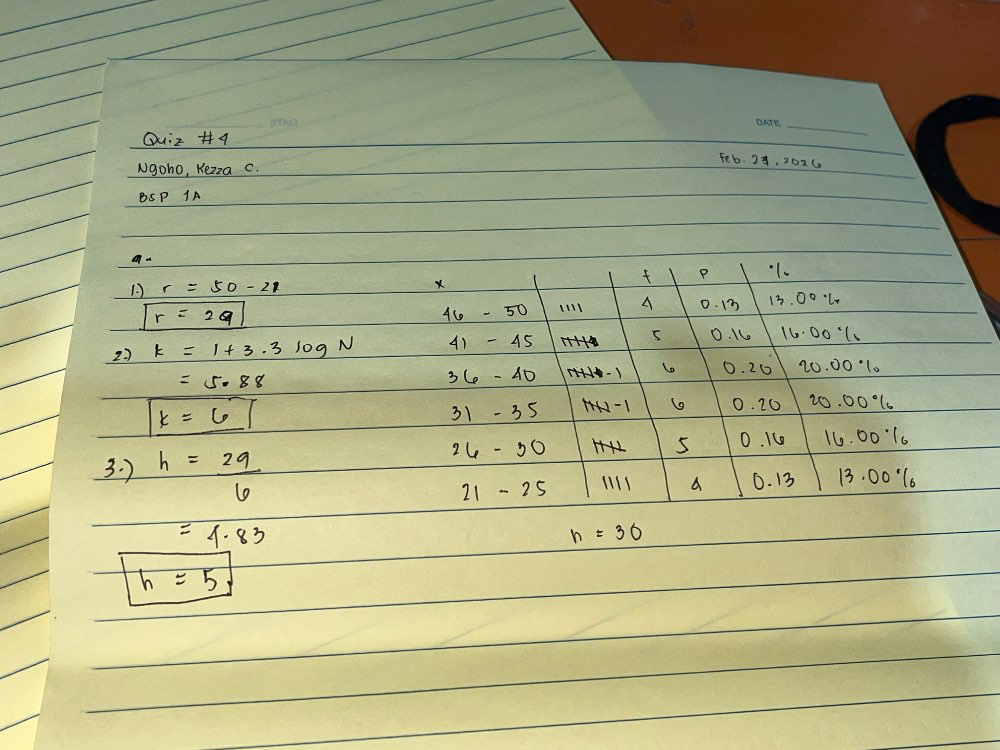 DATE
DATE
Quiz #4
Ngoho, Kezza C.
Feb. 21, 2026
BSP 1A
a.
1.) r = 50 - 21
r = 29
2.) k = 1 + 3.3 log N
= 5.88
k = 6
3.) h = 29
6
= 4.83
h = 5
x f P %
46 - 50 IIII 4 0.13 13.00%
41 - 45 IIII 5 0.16 16.00%
36 - 40 IIII-1 6 0.20 20.00%
31 - 35 IIII-1 6 0.20 20.00%
26 - 30 IIII 5 0.16 16.00%
21 - 25 IIII 4 0.13 13.00%
n = 30